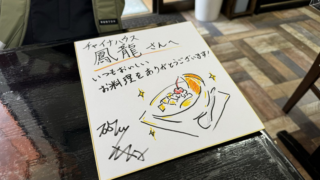 チャイナハウス
鳳龍さんへ
いつもおいしい
お料理をありがとうございます!